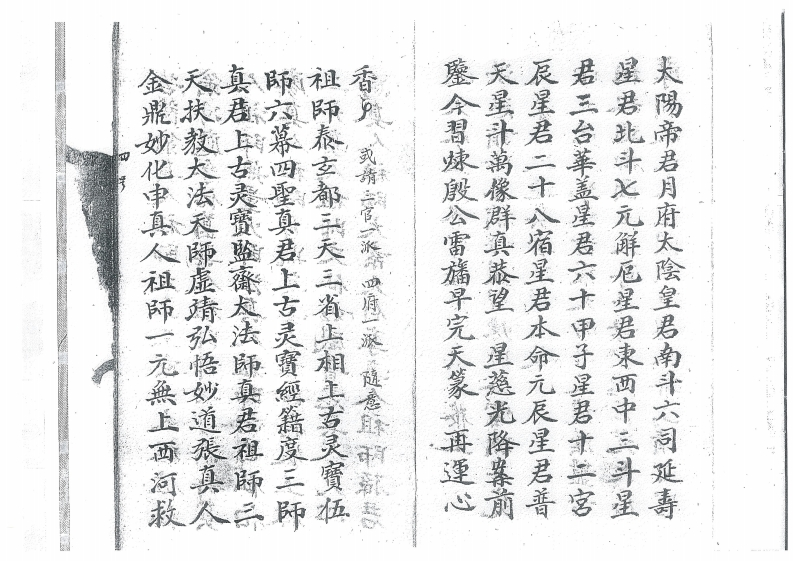 太陽帝君月府太陰皇君南斗六司延壽
星君北斗七元解厄星君東西中三斗星
君三台華盖星君六十甲子星君十二宮
辰星君二十八宿星君本命元辰星君普
天星斗萬像群真恭望 星慈光降案前
鑒今習煉殷公雷旛早完天篆再運心
香 或請三官一派 四府一派 隨意
祖師泰玄都三天三省上相上古灵寶伍
師六幕四聖真君上古灵寶經籍度三師
真君上古灵寶監齋大法師真君祖師三
天扶教大法天師虛靖弘悟妙道張真人
金鼎妙化申真人祖師一元無上西河救